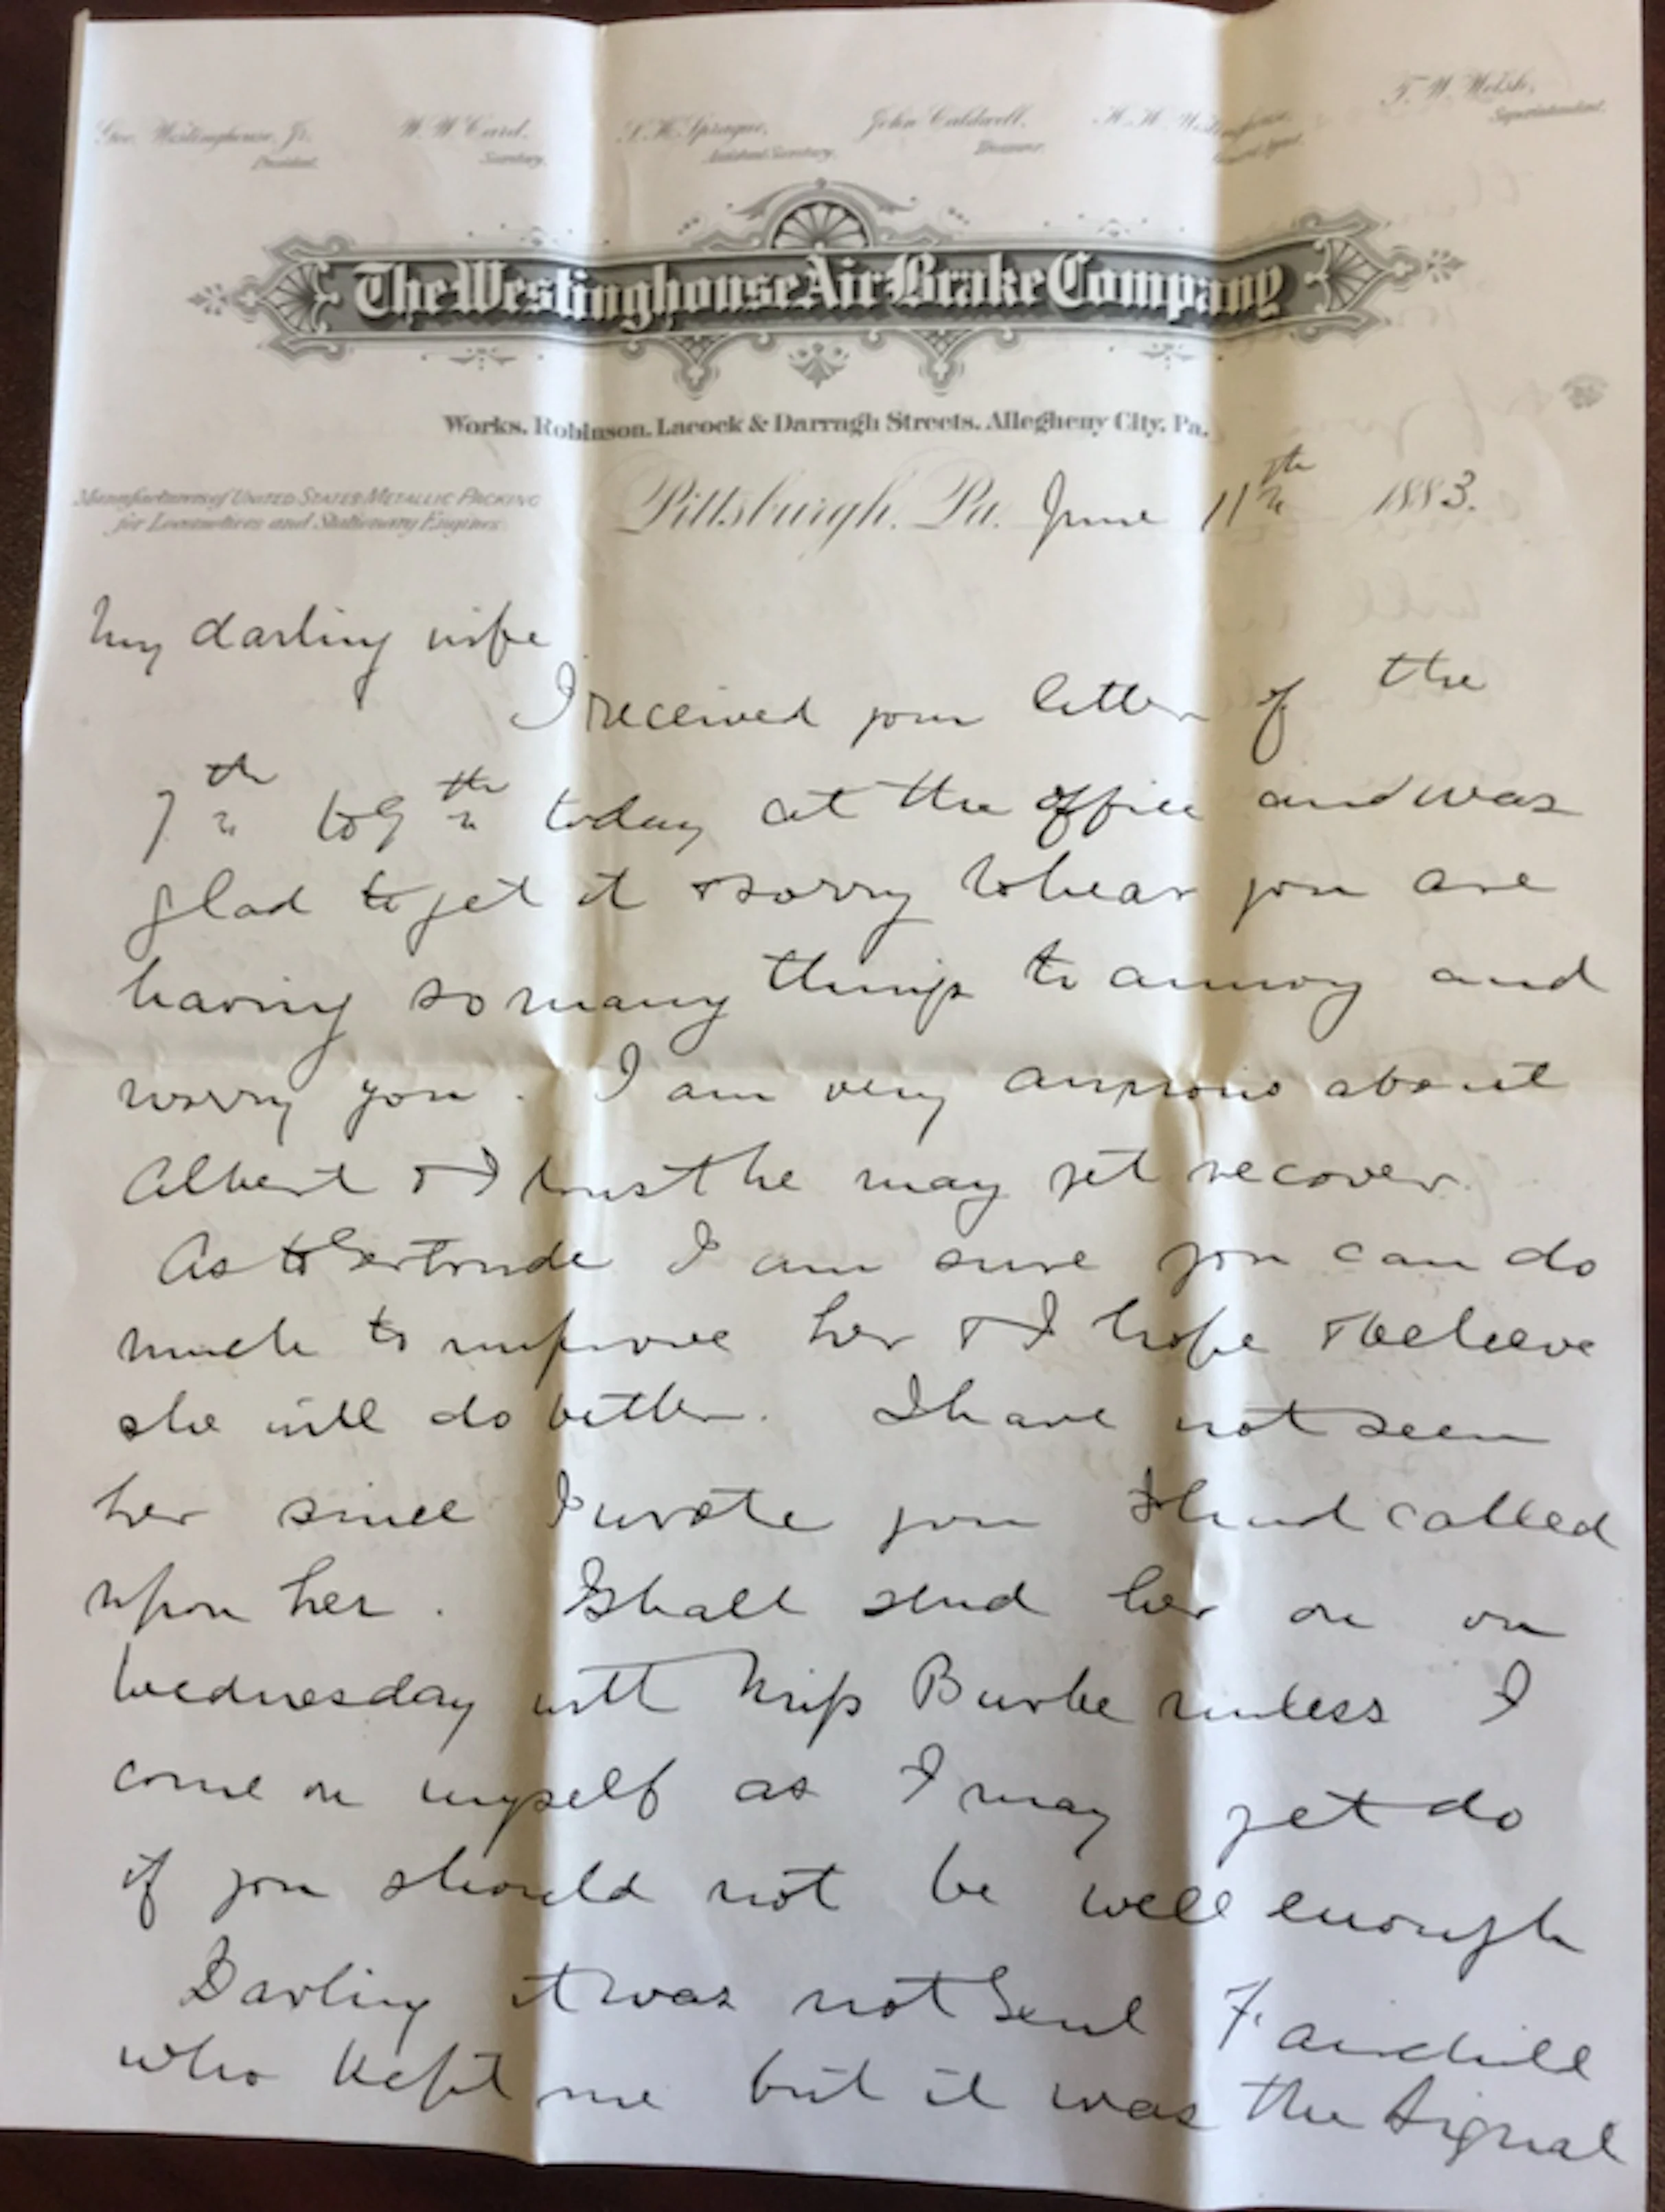 Geo. Westinghouse, Jr. President.
W. W. Card, Secretary.
S. H. Sprague, Assistant Secretary.
John Caldwell, Treasurer.
H. H. Westinghouse, General Agent.
T. W. Welsh, Superintendent.
The Westinghouse Air Brake Company
Works, Robinson, Lacock & Darragh Streets, Allegheny City, Pa.
Manufacturers of UNITED STATES METALLIC PACKING
for Locomotives and Stationary Engines.
Pittsburgh, Pa. June 11th 1883.
My darling wife
I received your letter of the
7th to 9th today at the office and was
glad to get it & sorry to hear you are
having so many things to annoy and
worry you. I am very anxious about
Albert & I trust he may yet recover.
As to Gertrude I am sure you can do
much to improve her & I hope & believe
she will do better. I have not seen
her since I wrote you I had called
upon her. I shall send her on on
Wednesday with Miss Burke unless I
come on myself as I may yet do
if you should not be well enough
Darling it was not Genl
who kept me but it was the Signal